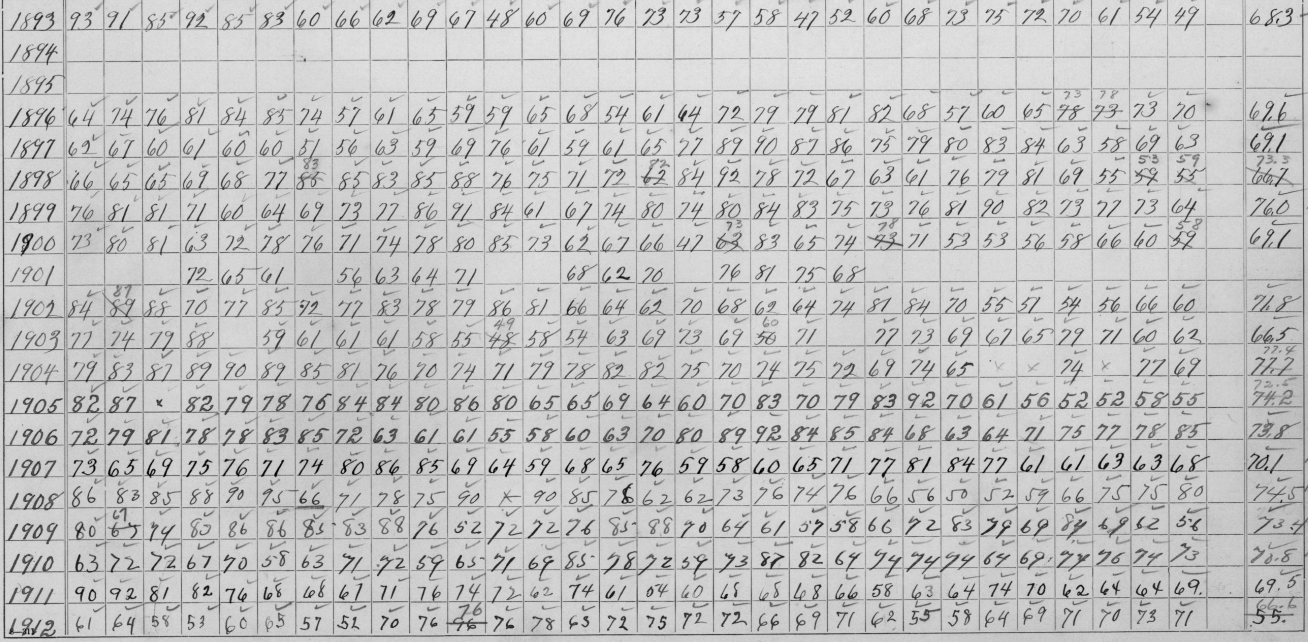 1893 93 91 85 92 85 83 60 66 62 69 67 48 60 69 76 73 73 57 58 47 52 60 68 73 75 72 70 61 54 49 68.3
1894
1895
73 78
1896 64 74 76 81 84 85 74 57 61 65 59 59 65 68 54 61 64 72 79 79 81 82 68 57 60 65 78 73 73 70 69.6
1897 62 67 60 61 60 60 51 56 63 59 69 76 61 59 61 65 77 89 90 87 86 75 79 80 83 84 63 58 69 63 69.1
83 82 53 59 73.3
1898 66 65 65 69 68 77 85 83 85 88 76 75 71 72 62 84 92 78 72 67 63 61 76 79 81 69 55 55 66.7
1899 76 81 81 71 60 64 69 73 77 86 91 84 61 67 74 80 74 80 84 83 75 73 76 81 90 82 73 77 73 64 76.0
73 78 58
1900 73 80 81 63 72 78 76 71 74 78 80 85 73 62 67 66 47 63 83 65 74 73 71 53 53 56 58 66 60 69.1
1901 72 65 61 56 63 64 71 68 62 70 76 81 75 68
87
1902 84 89 88 70 77 85 92 77 83 78 79 86 81 66 64 62 70 68 62 64 74 81 84 70 55 51 54 56 66 60 71.8
49 60
1903 77 74 79 88 59 61 61 61 58 55 48 58 54 63 69 73 69 50 71 77 73 69 67 65 79 71 60 62 66.5
77.4
1904 79 83 87 89 90 89 85 81 76 70 74 71 79 78 82 82 75 70 74 75 72 69 74 65 x x 74 x 77 69 77.7
72.5
1905 82 87 x 82 79 78 76 84 84 80 86 80 65 65 69 64 60 70 83 70 79 83 92 70 61 56 52 52 58 55 74.2
1906 72 79 81 78 78 83 85 72 63 61 61 55 58 60 63 70 80 89 92 84 85 84 68 63 64 71 75 77 78 85 73.8
1907 73 65 69 75 76 71 74 80 86 85 69 64 59 68 65 76 59 58 60 65 71 77 81 84 77 61 61 63 63 68 70.1
1908 86 83 85 88 90 95 66 71 78 75 90 x 90 85 78 62 62 73 76 74 76 66 56 50 52 59 66 75 75 80 74.5
67
1909 80 74 83 86 86 85 83 88 76 52 72 72 76 85 88 70 64 61 57 58 66 72 83 79 69 84 69 62 56 73.4
1910 63 72 72 67 70 58 63 71 72 59 65 71 69 85 78 72 59 73 87 82 64 74 74 74 64 69 74 76 74 73 70.8
1911 90 92 81 82 76 68 68 67 71 76 74 72 62 74 61 64 60 68 68 68 66 58 63 64 74 70 62 64 64 69. 69.5
76 66.6
1912 61 64 58 53 60 65 57 52 70 76 76 78 63 72 75 72 72 66 69 71 62 55 58 64 69 71 70 73 71 55.